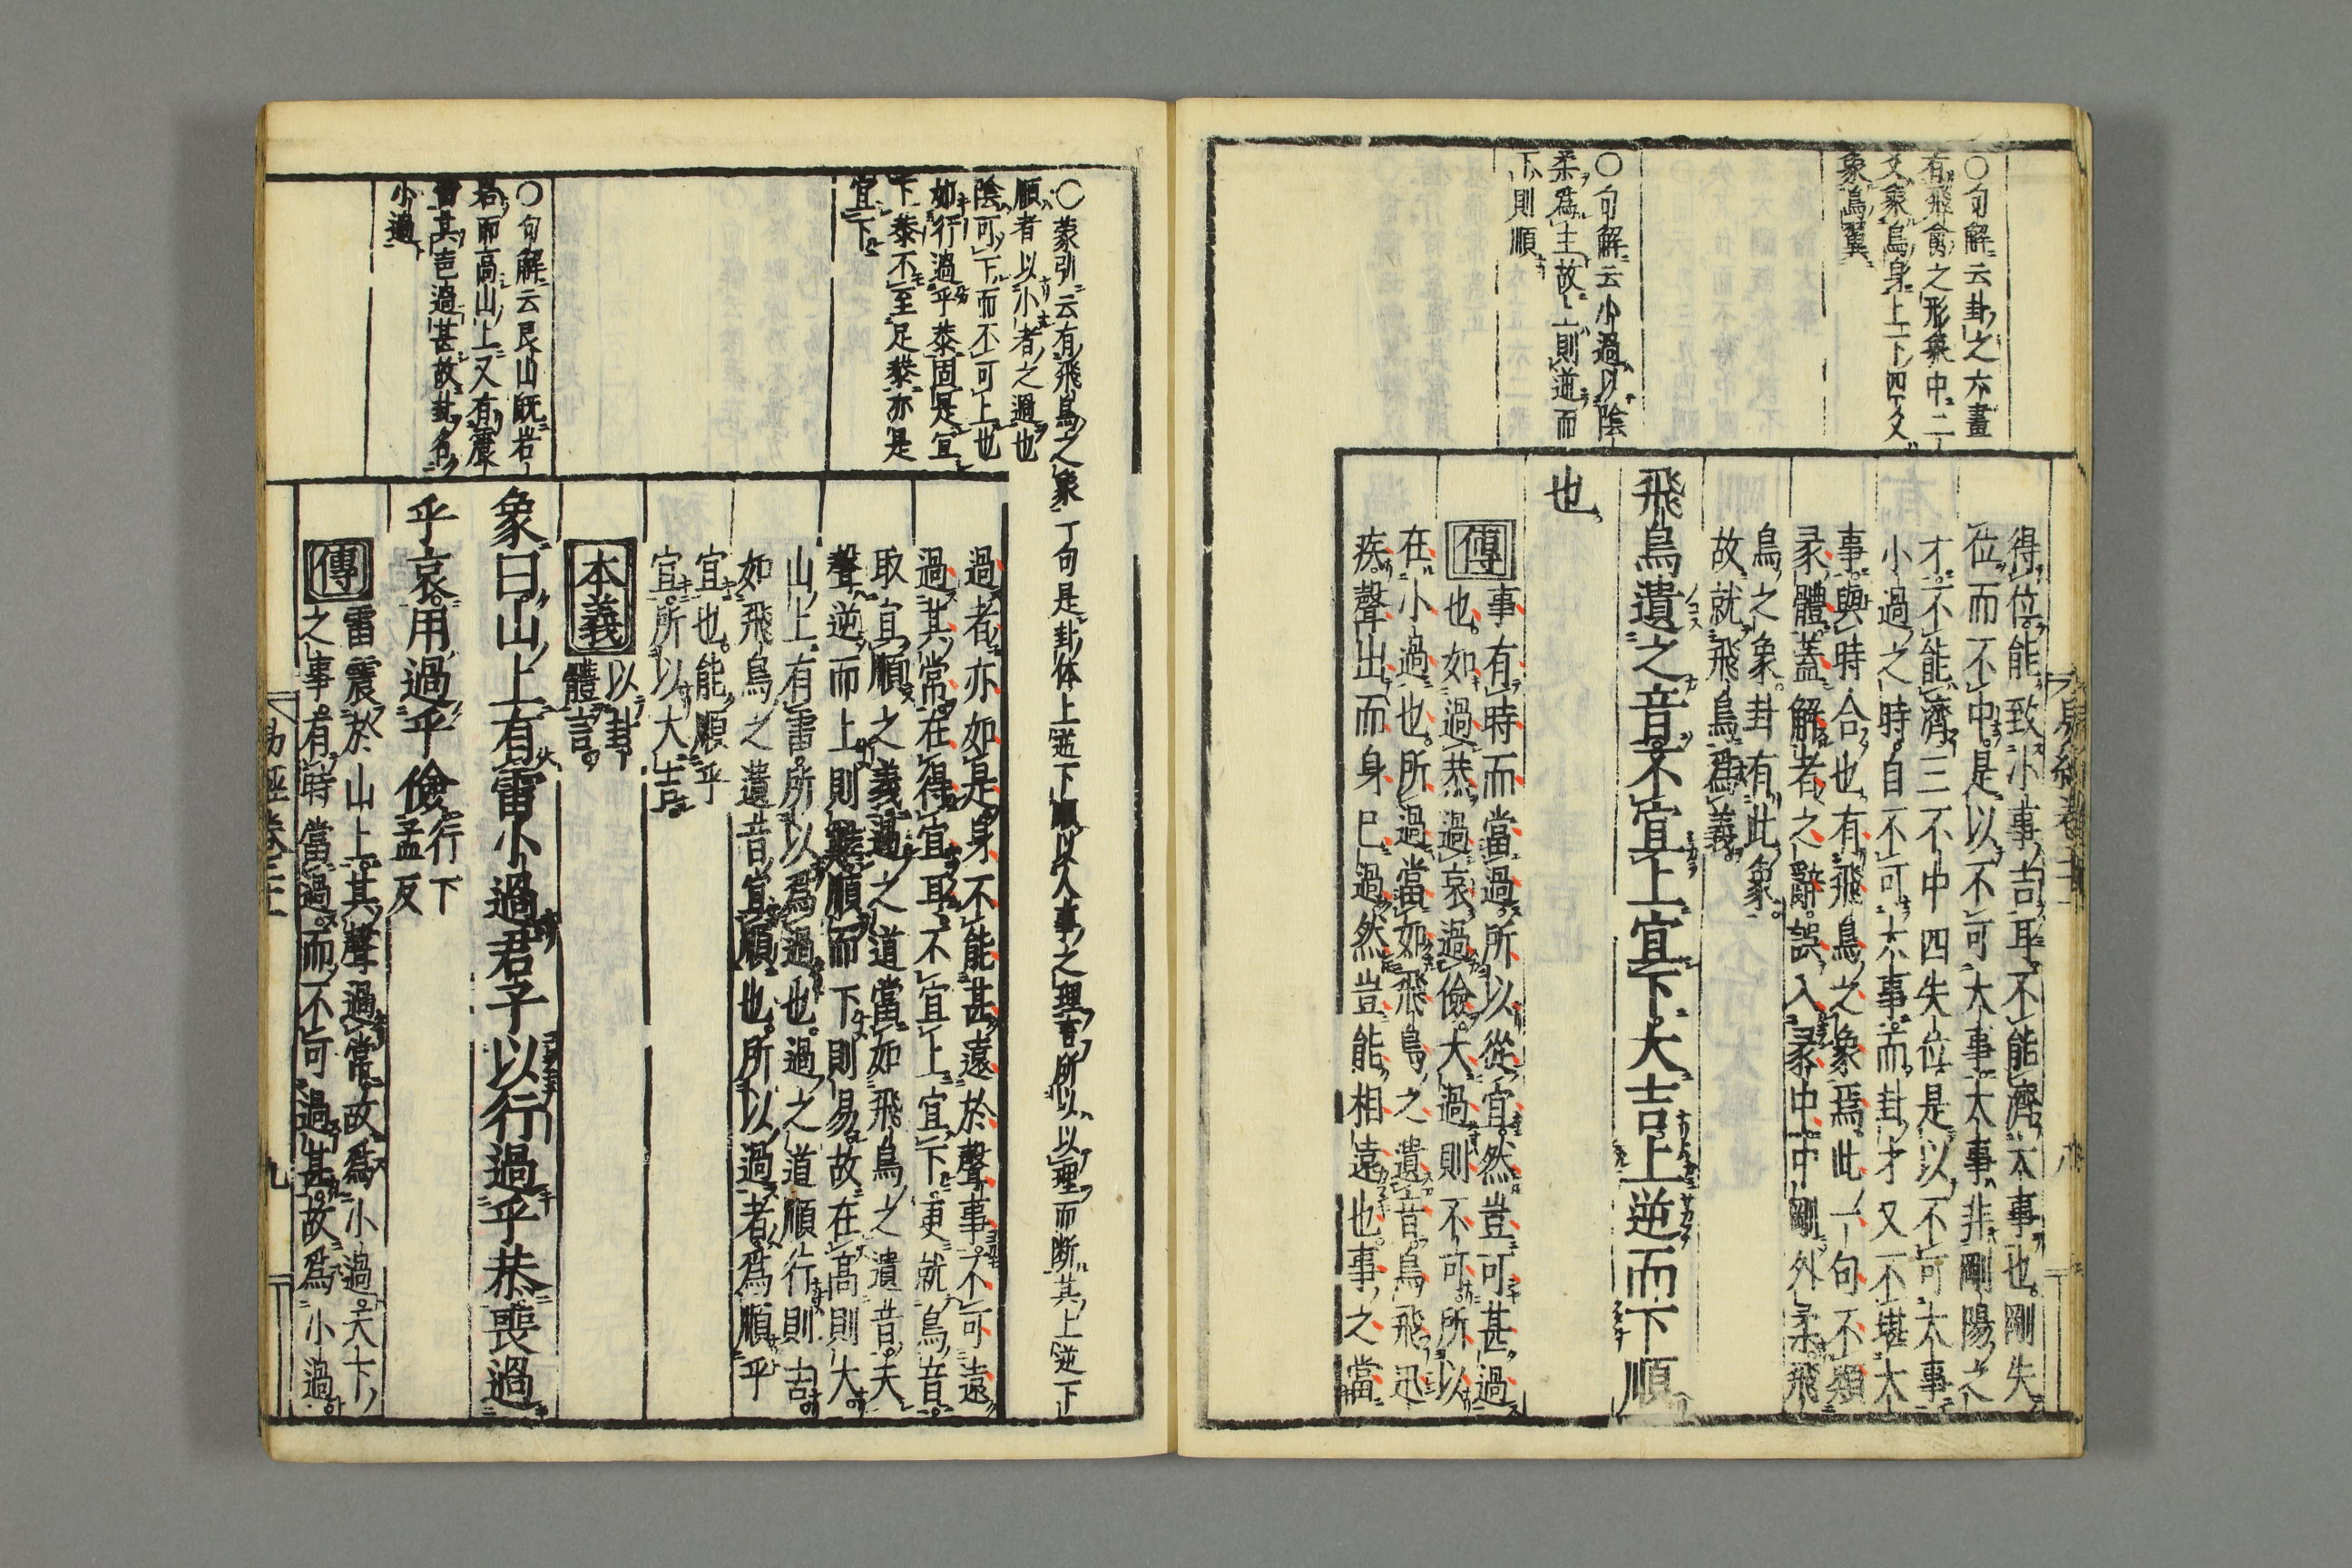 〇句解云卦之六畫
有飛禽之形象中二
爻象鳥身上下四爻
象鳥翼
〇句解云小過以陰
柔爲主故上則逆而
下則順
得位能致小事吉耳不能濟大事也剛失
位而不中是以不可大事大事非剛陽之
才不能濟三不中四失位是以不可大事
小過之時自不可大事而卦才又不堪大
事與時合也有飛鳥之象焉此一句不類
彖體蓋解者之辭誤入彖中中剛外柔飛
鳥之象卦有此象
故就飛鳥爲義
飛鳥遺之音不宜上宜下大吉上逆而下順
也
傳
事有時而當過所以從宜然豈可甚過
也如過恭過哀過儉大過則不可所以
在小過也所過當如飛鳥之遺音鳥飛迅
疾聲出而身已過然豈能相遠也事之當
〇蒙引云有飛鳥之象丁句是卦体上逆下順以人事之理言所以以理而断其上逆下
順者以小者之過也
陰可下而不可上也
如行過乎恭固是宜
下恭不至足恭亦是
宜下
過者亦如是身不能甚遠於聲事不可遠
過其常在得宜耳不宜上宜下更就鳥音
取宜順之義過之道當如飛鳥之遺音夫
聲逆而上則難順而下則易故在高則大
山上有雷所以爲過也過之道順行則吉
如飛鳥之遺音宜順也所以過者爲順乎
宜也能順乎
宜所以大吉
本義
以卦
體言
〇句解云艮山既岩
岩而高山上又有震
雷其声過甚故卦名
小過
象曰山上有雷小過君子以行過乎恭喪過
乎哀用過乎儉
行下
孟反
傳
雷震於山上其聲過常故爲小過天下
之事有時當過而不可過甚故爲小過
易經卷三
九